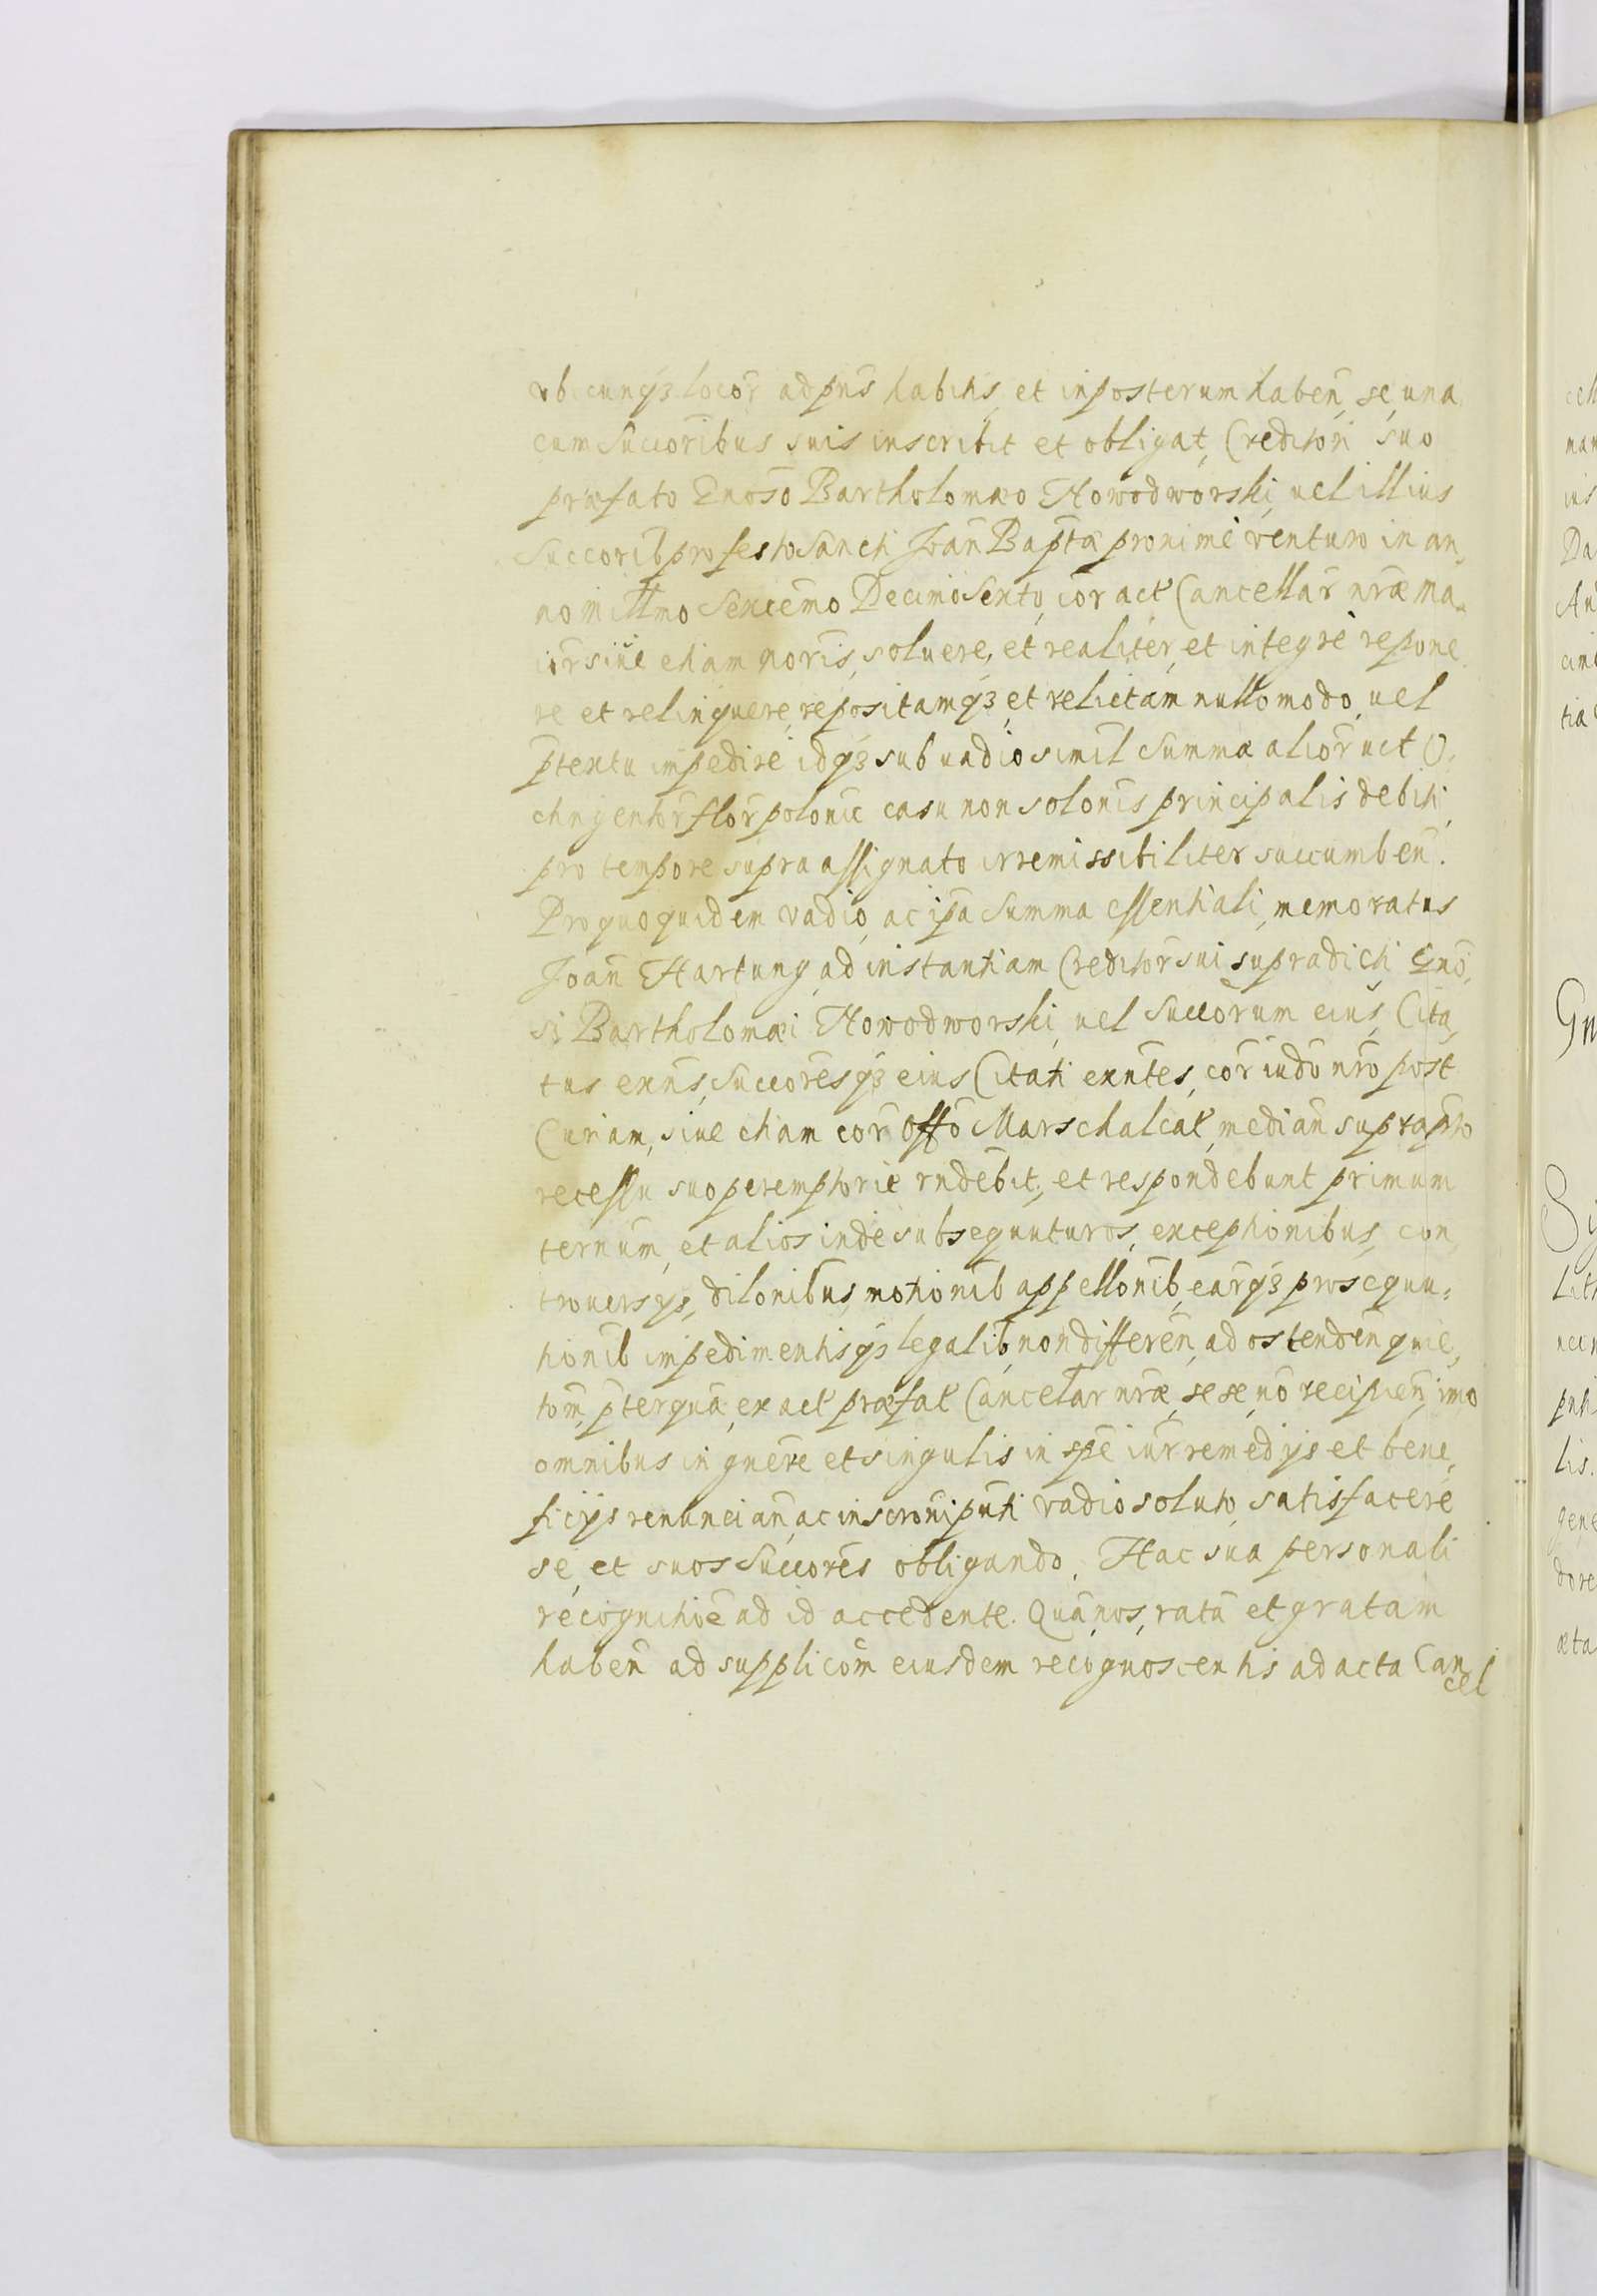 vbicunqȝ locor̄ ad pn̄s habitis, et in posterum haben̄, se, una
cum Succ̄oribus suis inscribit et obligat, Creditori suo
præfato Gnōso Bartholomæo Nowodworski, uel illius
Succorib̄ pro festo Sancti Joan̄ Bap̄tæ proxime venturo in an,
no mill̄mo Sexcēmo Decimo Sexto, cor̄ act̄ Cancellar̄ nr̄æ ma,
ior̄ siue etiam nor̄is, soluere, et realiter, et integrè repone,
re et relinquere, repositamqȝ, et relictam nullo modo, uel
p̄textu impedire idqȝ sub uadio simil̄ Summæ alior̄ uct O,
ctngentor̄ flor̄ polonic̄ casu non sol̄onis principalis debiti,
pro tempore supra assignato irremissibiliter succumben̄.
Pro quo quidem vadio, ac ip̄a Summa essentiali, memoratus
Joan̄ Hartung, ad instantiam Creditor̄ sui supradicti Gnō,
si Bartholomæi Nowodworski, uel Succ̄orum eius, Cita,
tus exn̄s, Succ̄oresqȝ eius Citati exn̄tes, cor̄ iud̄o nr̄o post
Curiam, siue etiam cor̄ Off̄o Marschalcat̄, median̄ supra pn̄to
recessu suo peremptorie rn̄debit, et respondebunt primum
ternum, et alios inde subsequuturos, exceptionibus, con,
trouersijs, dil̄onibus, motionib̄ appell̄onib̄, ear̄qȝ prosequu=
tionib̄ impedimentisqȝ legalib̄, non differen̄, ad ostenden̄ quie,
tom̄, p̄terqua, ex act̄ præfat̄ Cancellar̄ nr̄æ, sese, nō recipien̄, imo
omnibus in gn̄ere et singulis in sp̄e iur̄ remedijs et bene,
ficijs renuncian̄, ac inscron̄i pn̄ti vadio soluto, satisfacere
se, et suos Succ̄ores obligando. Hac sua personali
recognitiōe ad id accedente. Quā nos, ratā et gratam
haben̄ ad supplicōm eiusdem recognoscentis ad acta Can
cel